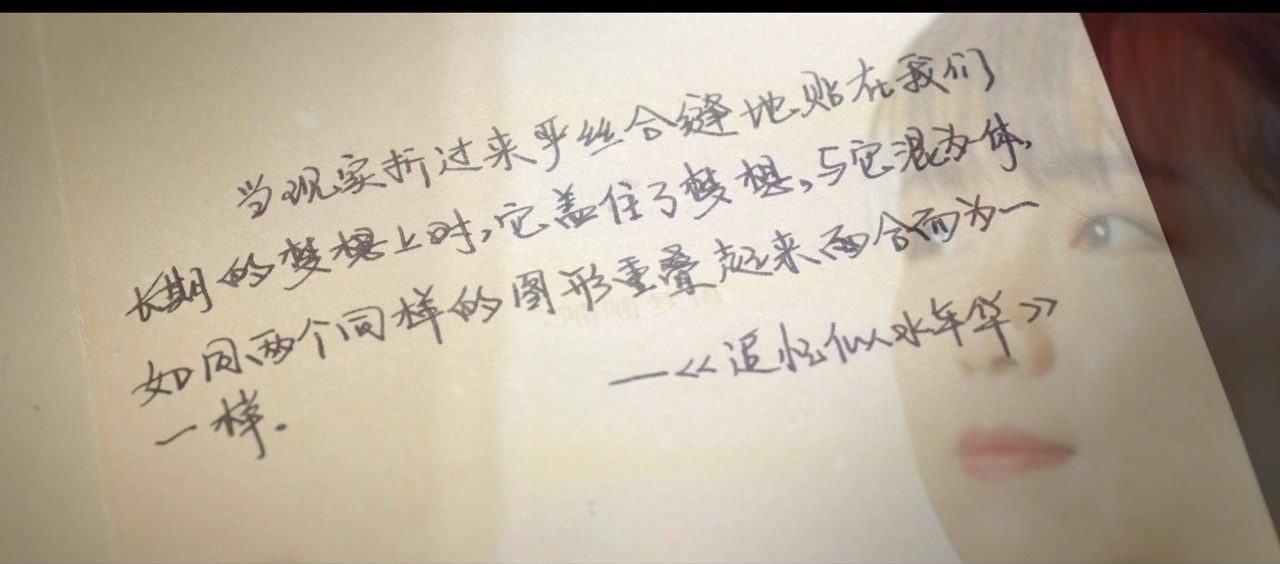 当现实折过来严丝合缝地贴在我们
长期的梦想上时,它盖住了梦想,与它混为一体,
如同两个同样的图形重叠起来而合而为一
一样.
——《追忆似水年华》